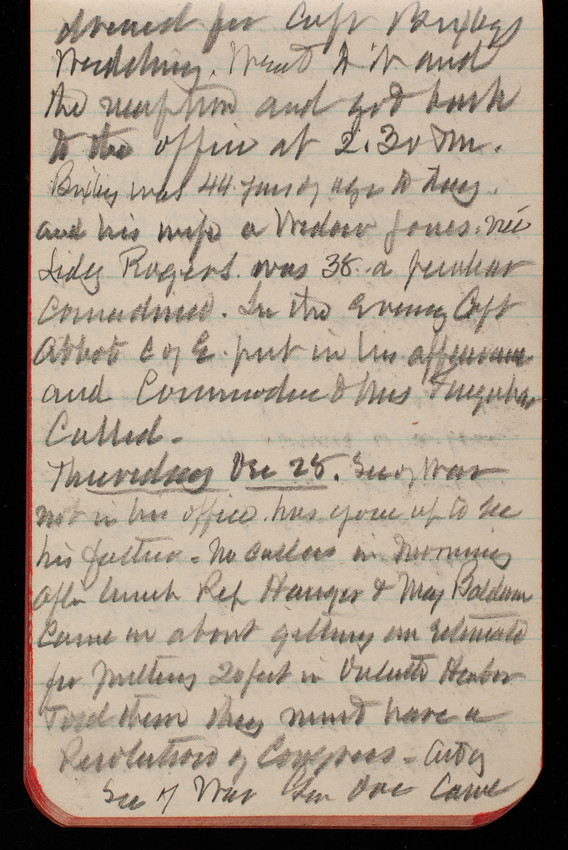 dressed for Capt Bixby
Wedding. Went to it and
the reception and got back
to the office at 2.30 PM.
Bixby was 44 years of age to day.
and his wife a Widow Jones. née
Lidy Rogers. was 38. a peculiar
coincidence. In the evening Capt
Abbot C of E. put in his appearance
and Commodore & Mrs Farquhar
Called -
Thursday Dec 28. Secy War
not in his office has gone up to see
his father - No callers in morning
after lunch Rep Hauger & May Baldwin
came in about getting an estimate
for putting 20 feet in Duluth Harbor
Told them they must have a
Resolution of Congress - Actg
Sec of War Gen Doe Came